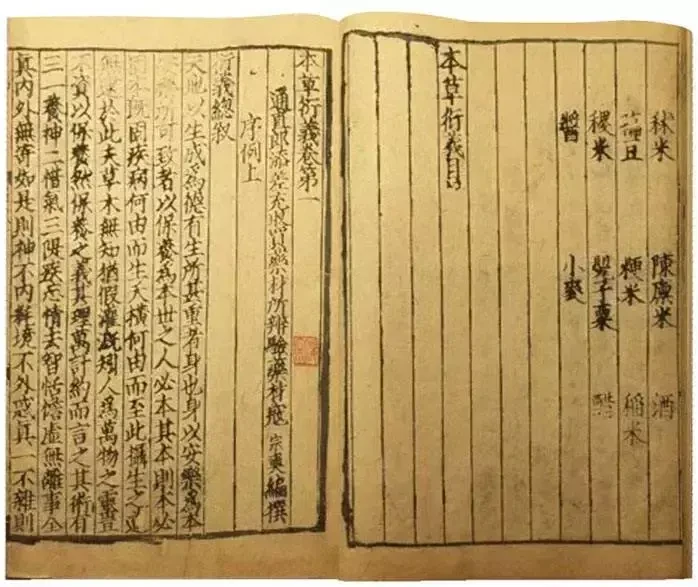 秫米 陳廩米 酒
豆 粳米 稻米
稷米 罌子粟
醬 小麥
本草衍義目
本草衍義卷第一
通直郎添差充收買藥材所辨驗藥材寇 宗奭 編撰
序例上
衍義總叙
天地以生成爲德有生所甚重者身也身以安樂爲本
安樂所可致者以保養爲本世之人必本其本則本必
固本既固疾病何由而生夭橫何由而至此攝生之道
無逮於此夫草木無知猶假灌溉矧人爲萬物之靈豈
不資以保養然保養之義其理萬計約而言之其術有
三一養神二惜氣三隄疾忘情去智恬憺虛無離事全
真內外無寄如是則神不內耗境不外惑真一不雜則